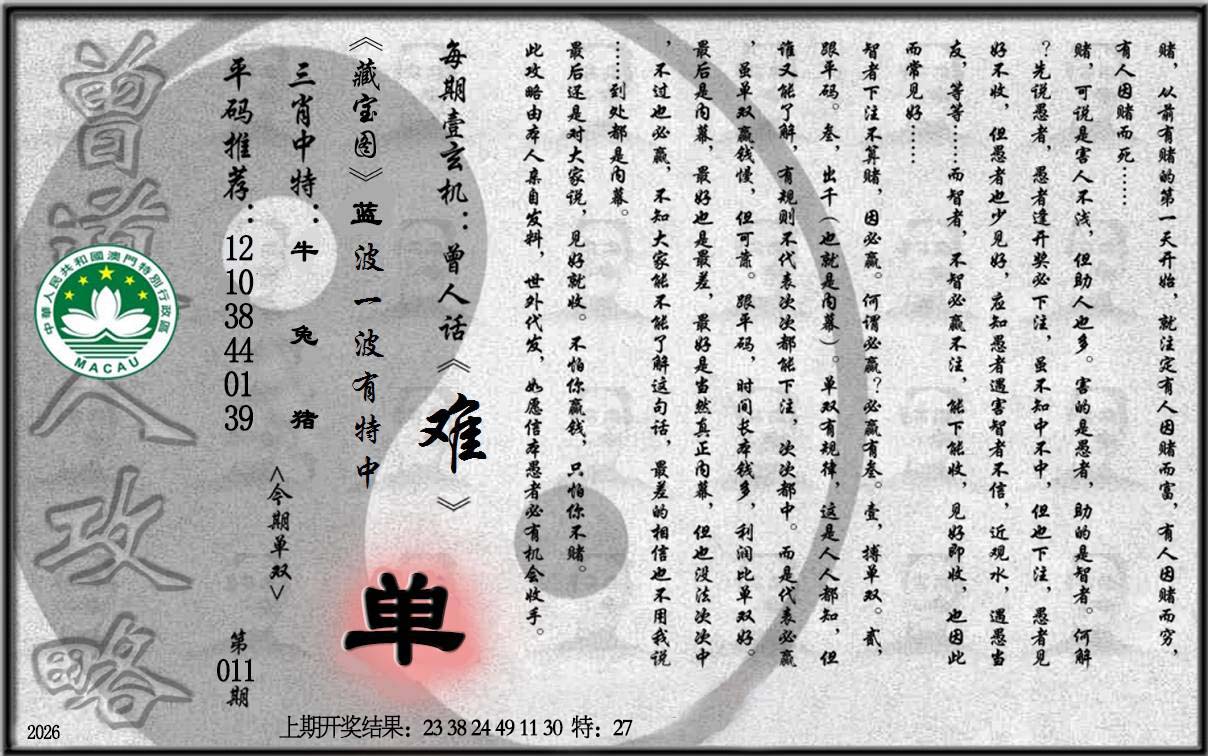 赌，从前有赌的第一天开始，就注定有人因赌而富，有人因赌而穷，
有人因赌而死……
赌，可说是害人不浅，但助人也多。害的是愚者，助的是智者。何解
？先说愚者，愚者逢开奖必下注，虽不知中不中，但也下注，愚者见
好不收，但愚者也少见好，应知愚者遇害智者不信，近观水，遇愚当
友，等等……而智者，不智必赢不注，能下能收，见好即收，也因此
而常见好……
智者下注不算赌，因必赢。何谓必赢？必赢有叁。壹，搏单双。贰，
跟平码。叁，出千（也就是内幕）。单双有规律，这是人人都知，但
谁又能了解，有规则不代表次次都能下注，次次都中。而是代表必赢
，虽单双赢钱慢，但可靠。跟平码，时间长本钱多，利润比单双好。
最后是内幕，最好也是最差，最好是当然真正内幕，但也没法次次中
，不过也必赢，不知大家能不能了解这句话，最差的相信也不用我说
……到处都是内幕。
最后还是对大家说，见好就收。不怕你赢钱，只怕你不赌。
此攻略由本人亲自发料，世外代发，如愿信本愚者必有机会收手。
每期壹玄机：曾人话《难》
《藏宝图》蓝波一波有特中
单
三肖中特：牛 兔 猪
<今期单双>
平码推荐：12 10 38 44 01 39
第011期
曾道人攻略
中華人民共和國澳門特別行政區
MACAU
上期开奖结果：23 38 24 49 11 30 特：27
2026